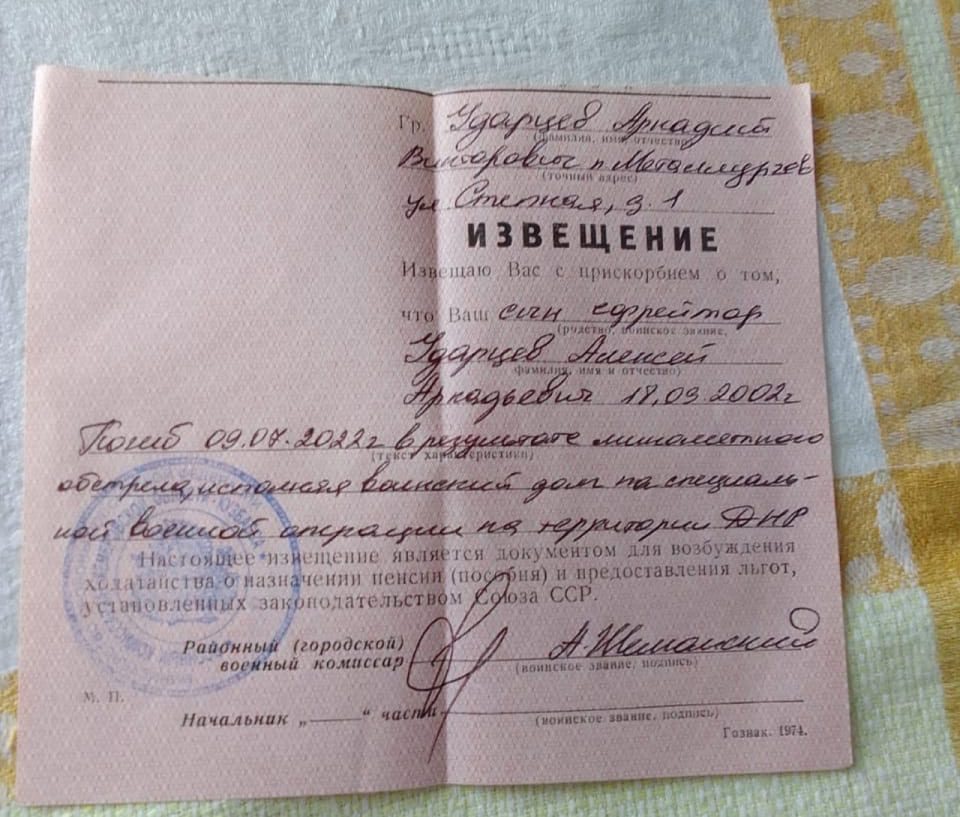 Гр. Ударцев Аркадий
(фамилия, имя, отчество)
Викторович п. Металлургов
(точный адрес)
ул. Степная, д. 1
ИЗВЕЩЕНИЕ
Извещаю Вас с прискорбием о том,
что Ваш сын ефрейтор
(родство, воинское звание,
Ударцев Алексей
фамилия, имя и отчество)
Аркадьевич 18.09.2002г
Погиб 09.07.2022г в результате минометного
(текст характеристики)
обстрела, исполняя воинский долг на специаль-
ной военной операции на территории ДНР
Настоящее извещение является документом для возбуждения
ходатайства о назначении пенсии (пособия) и предоставления льгот,
установленных законодательством Союза ССР.
Районный (городской)
военный комиссар
(воинское звание, подпись)
М. П.
Начальник „—“ части
(воинское звание, подпись)
Гознак. 1974.